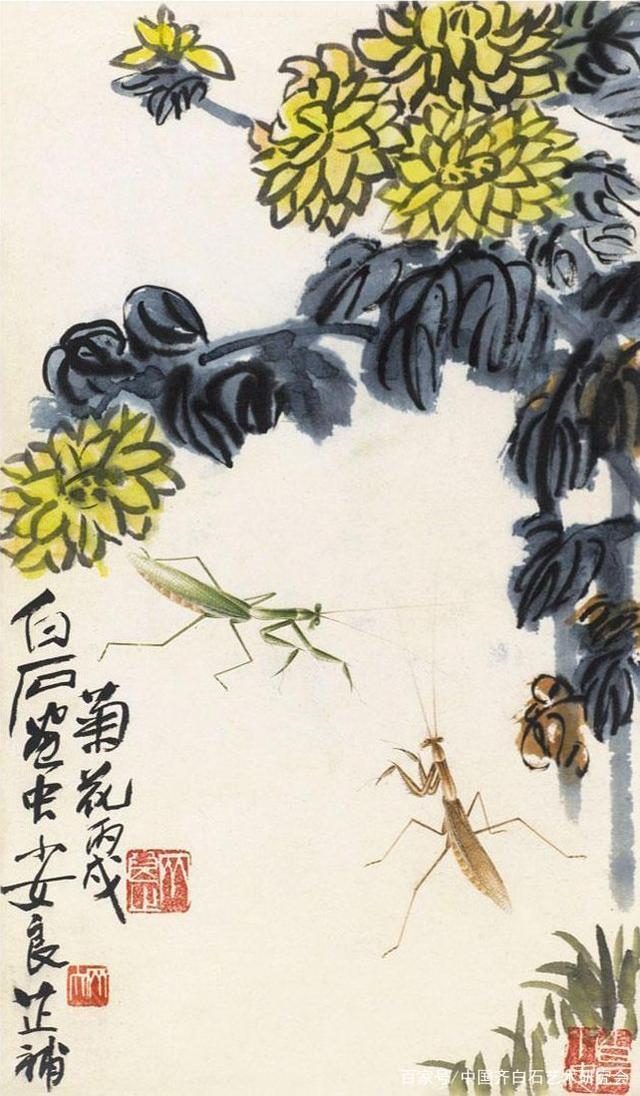 白石畫虫小女良芷補
菊花丙戌
百家号/中国齐白石艺术研究会